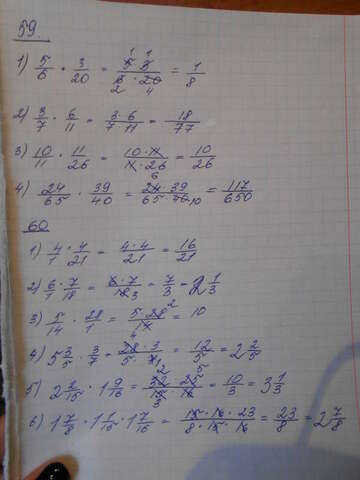 59.
1) 5/6 · 3/20 = 5 · 3 / 6 · 20 = 1/8
2) 3/7 · 6/11 = 3·6 / 7·11 = 18/77
3) 10/11 · 11/26 = 10·11 / 11·26 = 10/26
4) 24/65 · 39/40 = 24·39 / 65·40 = 117/650
60
1) 4/1 · 4/21 = 4·4/21 = 16/21
2) 6/1 · 7/18 = 6·7/18 = 7/3 = 2 1/3
3) 5/14 · 28/1 = 5·28/14 = 10
4) 5 3/5 · 3/7 = 28·3 / 5·7 = 12/5 = 2 2/5
5) 2 2/15 · 1 9/16 = 32·25 / 15·16 = 10/3 = 3 1/3
6) 1 7/8 · 1 1/15 · 1 7/16 = 15·16·23 / 8·15·16 = 23/8 = 2 7/8